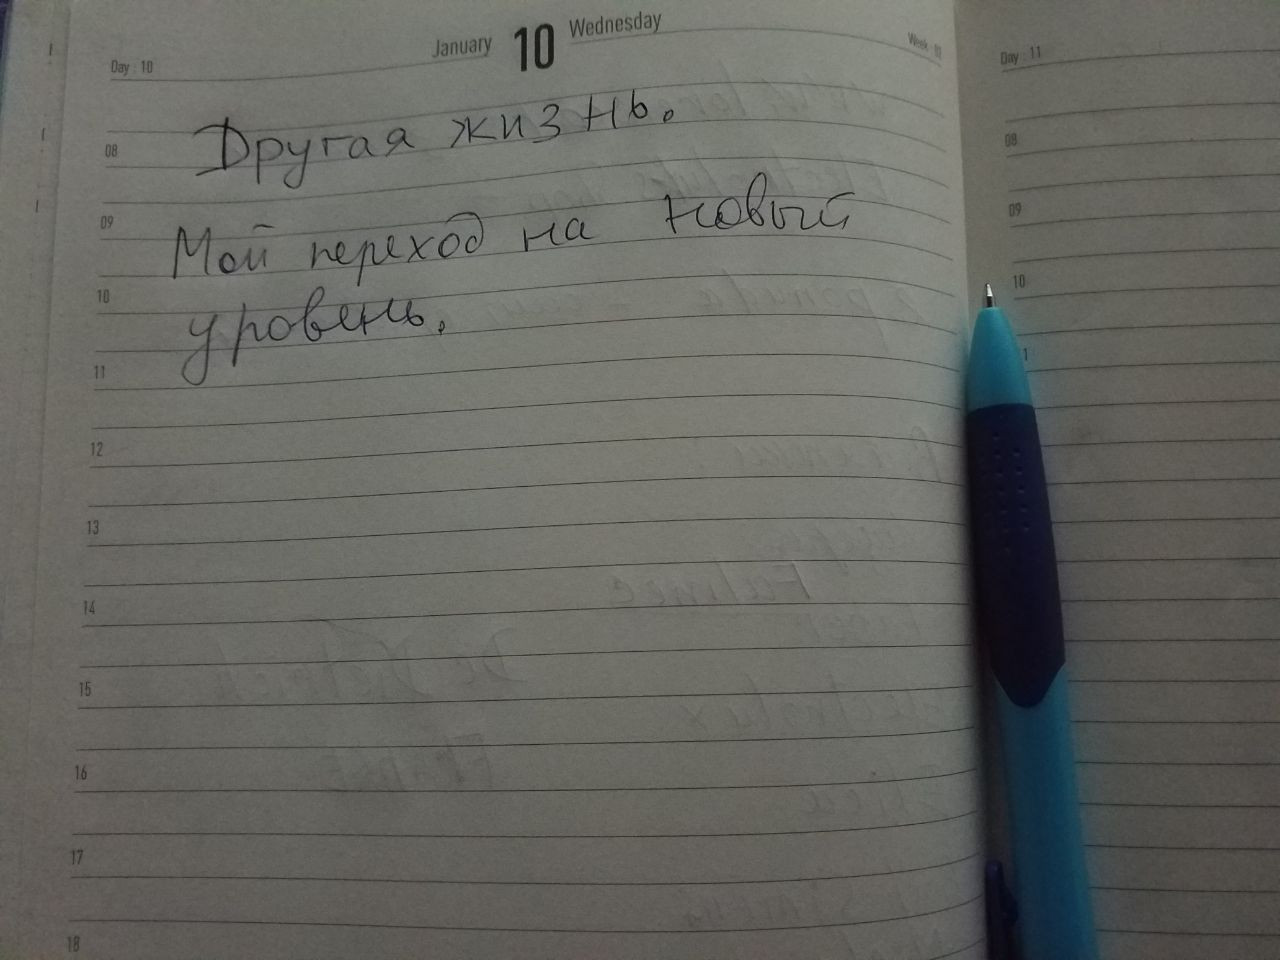 January 10 Wednesday
Day : 10
Day : 11
Другая жизнь.
Мой переход на новый
уровень.
08
09
10
11
12
13
14
15
16
17
18
08
09
10